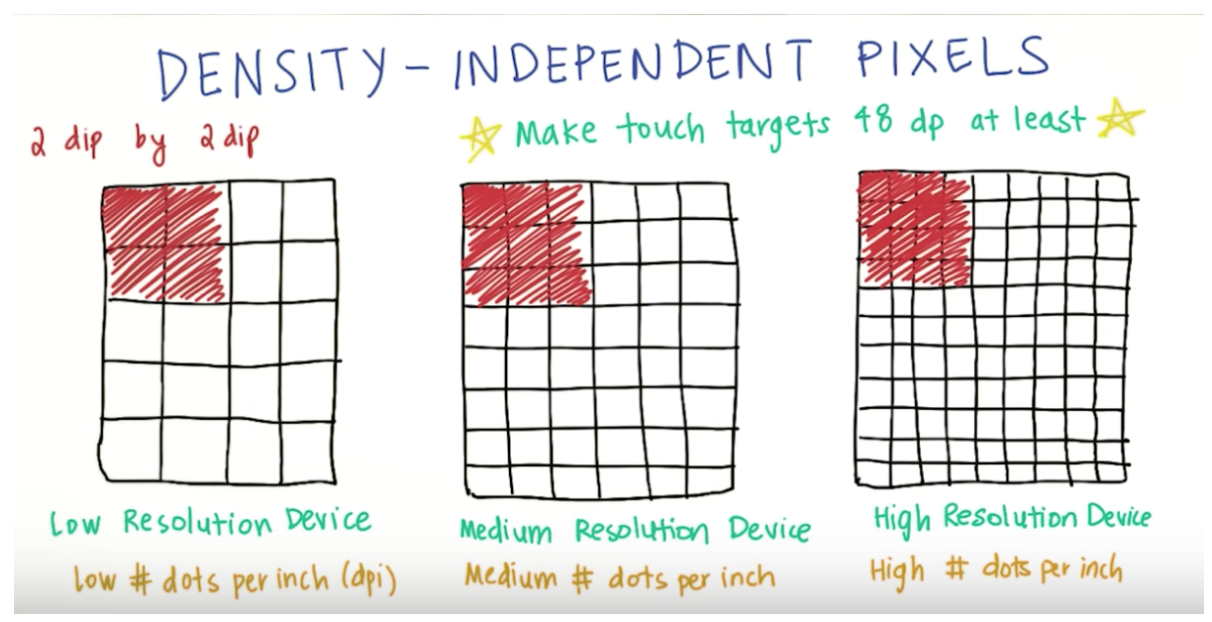 DENSITY - INDEPENDENT PIXELS
2 dip by 2 dip
Make touch targets 48 dp at least
Low Resolution Device
Low # dots per inch (dpi)
Medium Resolution Device
Medium # dots per inch
High Resolution Device
High # dots per inch